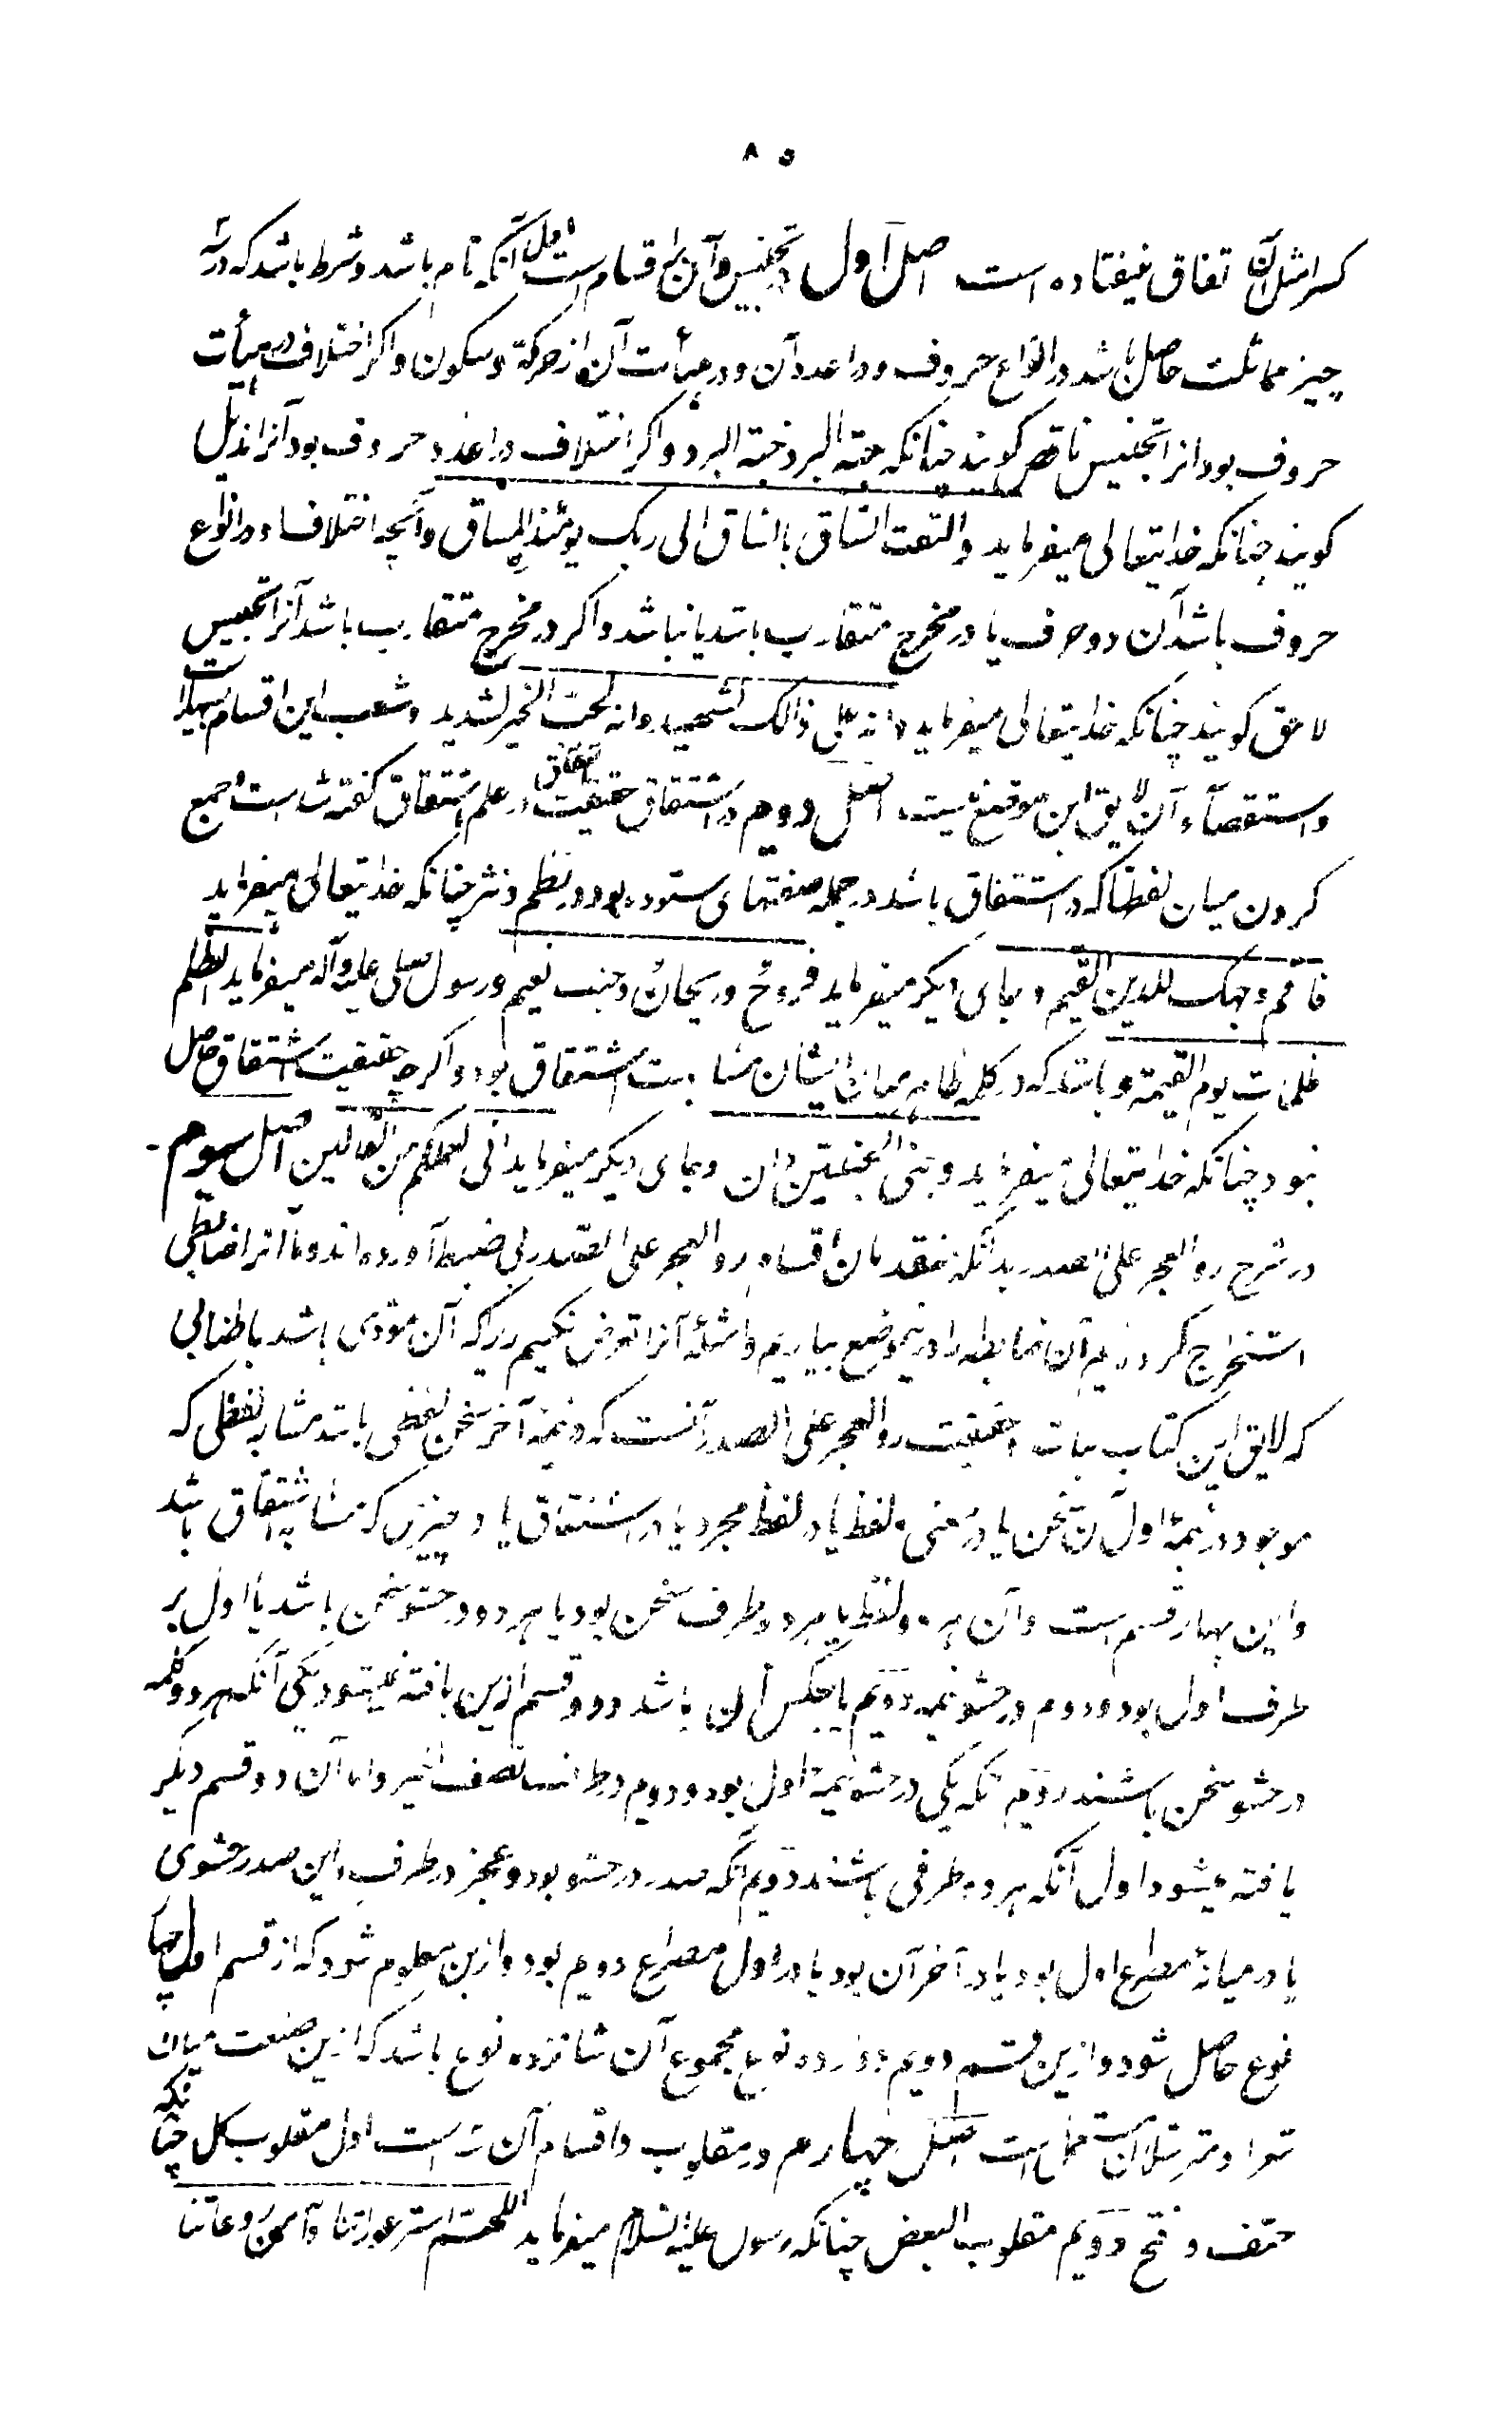 ۸۵
کس را مثل آن اتفاق نیفتاده است اصل اول در تجنیس و آن را اقسام است اول آنکه تام باشد و شرط باشد که در سه
چیز مماثلت حاصل باشد در انواع حروف و در اعداد آن و در هیأت آن از حرکة و سکون و اکر اختلاف در هیأت
حروف بود انرا تجنیس ناقص کویند چنانکه جبة البرد جنة البرد و اکر اختلاف در اعداد حروف بود آنرا مذیل
کویند چنانکه خدایتعالی میفرماید والتفت الساق بالساق الی ربک یومئذ المساق و آنچه اختلاف او در انواع
حروف باشد آن دو حرف یا در مخرج متقارب باشد یا نباشد و اکر در مخرج متقارب باشد آنرا تجنیس
لاحق کویند چنانکه خدایتعالی میفرماید وانه علی ذالک لشهید وانه لحب الخیر لشدید و شعب این اقسام بسیار است
و استقصآء آن لایق این موضع نیست اصل دویم در اشتقاق حقیقت اشتقاق در علم اشتقاق کفته شده است و جمع
کردن میان لفظها که در اشتقاق باشد در جمله صفتهای ستوده بود در نظم و نثر چنانکه خدایتعالی میفرماید
فاقم وجهک للدین القیم و بجای دیکر میفرماید فروحٌ وریحانٌ وجنت نعیم و رسول صلی علیه وآله میفرماید الظلم
ظلمات یوم القیمة و باشد که در کلمه ظاهر میان ایشان مشابهت اشتقاق بود و اکرچه حقیقت اشتقاق حاصل
نبود چنانکه خدایتعالی میفرماید وجنی الجنتین دان و بجای دیکر میفرماید انی لعملکم من القالین اصل سوم
در شرح رد العجز علی الصدر بدانکه متقدمان اقسام رد العجز علی الصدر بی ضبط آورده اند و ما آنرا ضابطی
استخراج کردیم آن ضابطه را در ینموضع بیاریم و امثلهٔ آنرا تعرض نکنیم زیرا که آن مؤدی باشد باطنابی
که لایق این کتاب نباشد حقیقت رد العجز علی الصدر آنست که در نیمهٔ آخر سخن لفظی باشد مشابه لفظی که
موجود در نیمهٔ اول آن سخن یا در معنی و لفظ یا در لفظ مجرد یا در اشتقاق یا در چیزی که مشابه اشتقاق باشد
و این چهار قسم است و آن هر دو لفظ یا هر دو طرف سخن بود یا هر دو در حشو سخن باشد یا اول بر
طرف اول بود و دوم در حشو نیمه دویم یا بعکس آن باشد و دو قسم ازین یافته نمیشود یکی آنکه هر دو کلمه
در حشو سخن باشند دویم آنکه یکی در حشو نیمهٔ اول بود و دوم در طرف نصف اخیر و اما آن دو قسم دیکر
یافته میشود اول آنکه هر دو طرفی باشند دویم آنکه صدر در حشو بود و عجز در طرف و این صدر حشوی
یا در میانهٔ مصراع اول بود یا در آخر آن بود یا در اول مصراع دویم بود و ازین معلوم شود که از قسم اول چهار
نوع حاصل شود و ازین قسم دویم دوازده نوع مجموع آن شانزده نوع باشد که ازین صنعت میان
است اصل چهارم در مقلوب و اقسام آن سه است اول مقلوب کل چنانکه
حتف و فتح دویم مقلوب البعض چنانکه رسول علیه السلام میفرماید اللهم استر عوراتنا وآمن روعاتنا